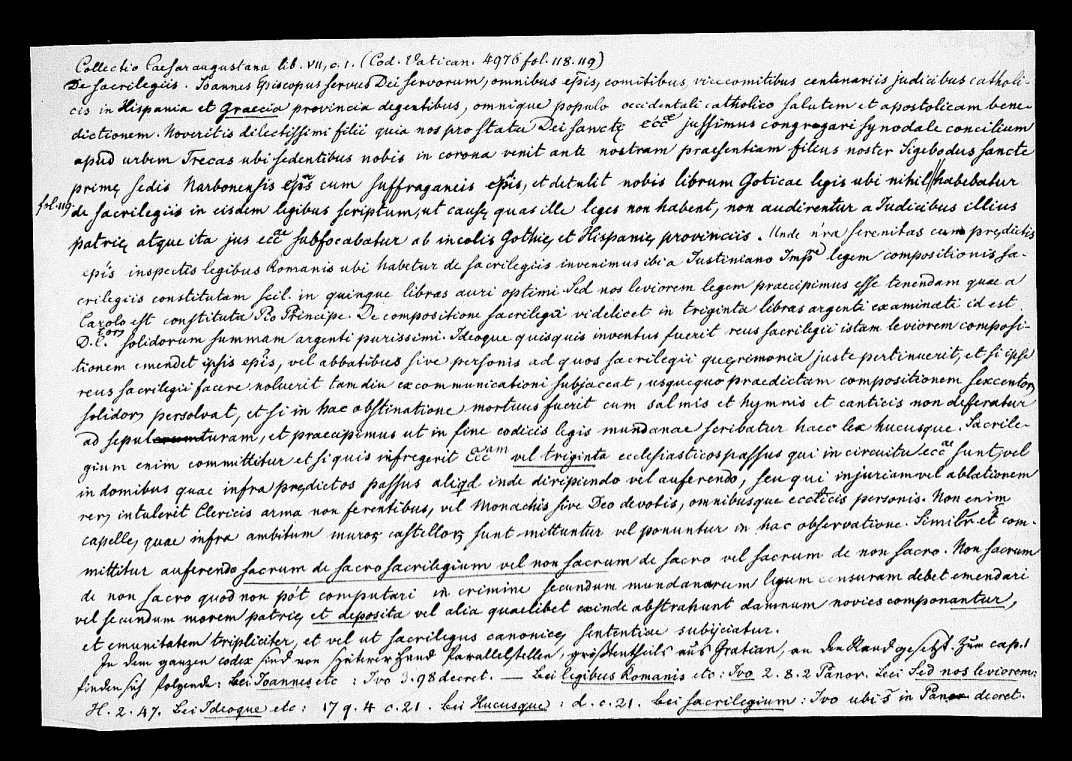 Collectio Caesaraugustana lib. VII, c. 1. (Cod. Vatican. 4976 fol. 118.119)
De sacrilegiis. Ioannes Episcopus servus Dei servorum, omnibus epīs, comitibus, vicecomitibus centenariis judicibus catholi-
cis in Hispania et Graecia provincia degentibus, omnique populo occidentali catholico salutem et apostolicam bene-
dictionem. Noveritis dilectissimi filii quia nos pro statu Dei sanctę eccę jussimus congregari synodale concilium
apud urbem Trecas ubi sedentibus nobis in corona venit ante nostram praesentiam filius noster Sigebodus sancte
primę sedis Narbonensis epūs cum suffraganeis epīs, et detulit nobis librum Goticae legis ubi nihil || habebatur
fol. 119. de sacrilegiis in eisdem legibus scriptum, ut causę quas ille leges non habent, non audirentur a Iudicibus illius
patrię atque ita jus eccę suffocabatur ab incolis Gothię et Hispanię provinciis. Unde nra serenitas cum prędictis
epīs inspectis legibus Romanis ubi habetur de sacrilegiis invenimus ibi a Iustiniano Impr̄e legem compositionis sa-
crilegiis constitutam scil. in quinque libras auri optimi. Sed nos leviorem legem, praecipimus esse tenendam quae a
Carolo est constituta Pio Principe. De compositione sacrilegii videlicet in triginta libras argenti examinati id est
D.C.torꝫ solidorum summam argenti purissimi. Ideoque quisquis inventus fuerit reus sacrilegii istam leviorem composi-
tionem emendet ipsis epīs, vel abbatibus sive personis ad quos sacrilegii querimonia juste pertinuerit, et si ipse
reus sacrilegii facere noluerit tamdiu excommunicationi subjaceat, usquequo praedictam compositionem sexcentorꝫ
solidorꝫ persolvat, et si in hac obstinatione mortuus fuerit cum salmis et hymnis et canticis non deferatur
ad sepulturam, et praecipimus ut in fine codicis legis mundanae scribatur haec lex hucusque. Sacrile-
gium enim committitur et si quis infregerit Eccam vel triginta ecclesiasticos passus qui in circuitu eccę sunt, vel
in domibus quae infra prędictos passus aliqd inde diripiendo vel auferendo, seu qui injuriam vel ablationem
rerꝫ intulerit Clericis arma non ferentibus, vel Monachis sive Deo devotis, omnibusque eccticis personis. Non enim
capelle, quae infra ambitum murorꝫ castellorꝫ sunt mittuntur vel ponuntur in hac observatione. Similr et com-
mittitur auferendo sacrum de sacro sacrilegium vel non sacrum de sacro vel sacrum de non sacro. Non sacrum
de non sacro quod non pōt computari in crimine secundum mundanarum legum censuram debet emendari
vel secundum morem patrię et deposita vel alia quaelibet exinde abstrahunt damnum novies componantur,
et emunitatem tripliciter, et vel ut sacrilegus canonicę sententiae subijciatur.
In dem ganzen codex sind von späterer Hand Parallelstellen, größtentheils aus Gratian, an den Rand gesetzt. Zum cap. 1
finden sich folgende: bei Ioannes etc: Ivo 3.98 decret. — Bei legibus Romanis etc: Ivo 2.8.2 Panor. Bei Sed nos leviorem:
H. 2.47. bei Ideoque etc: 17 q. 4 c. 21. bei Hucusque: d. c. 21. bei sacrilegium: Ivo ubi s̄ in Panor decret.